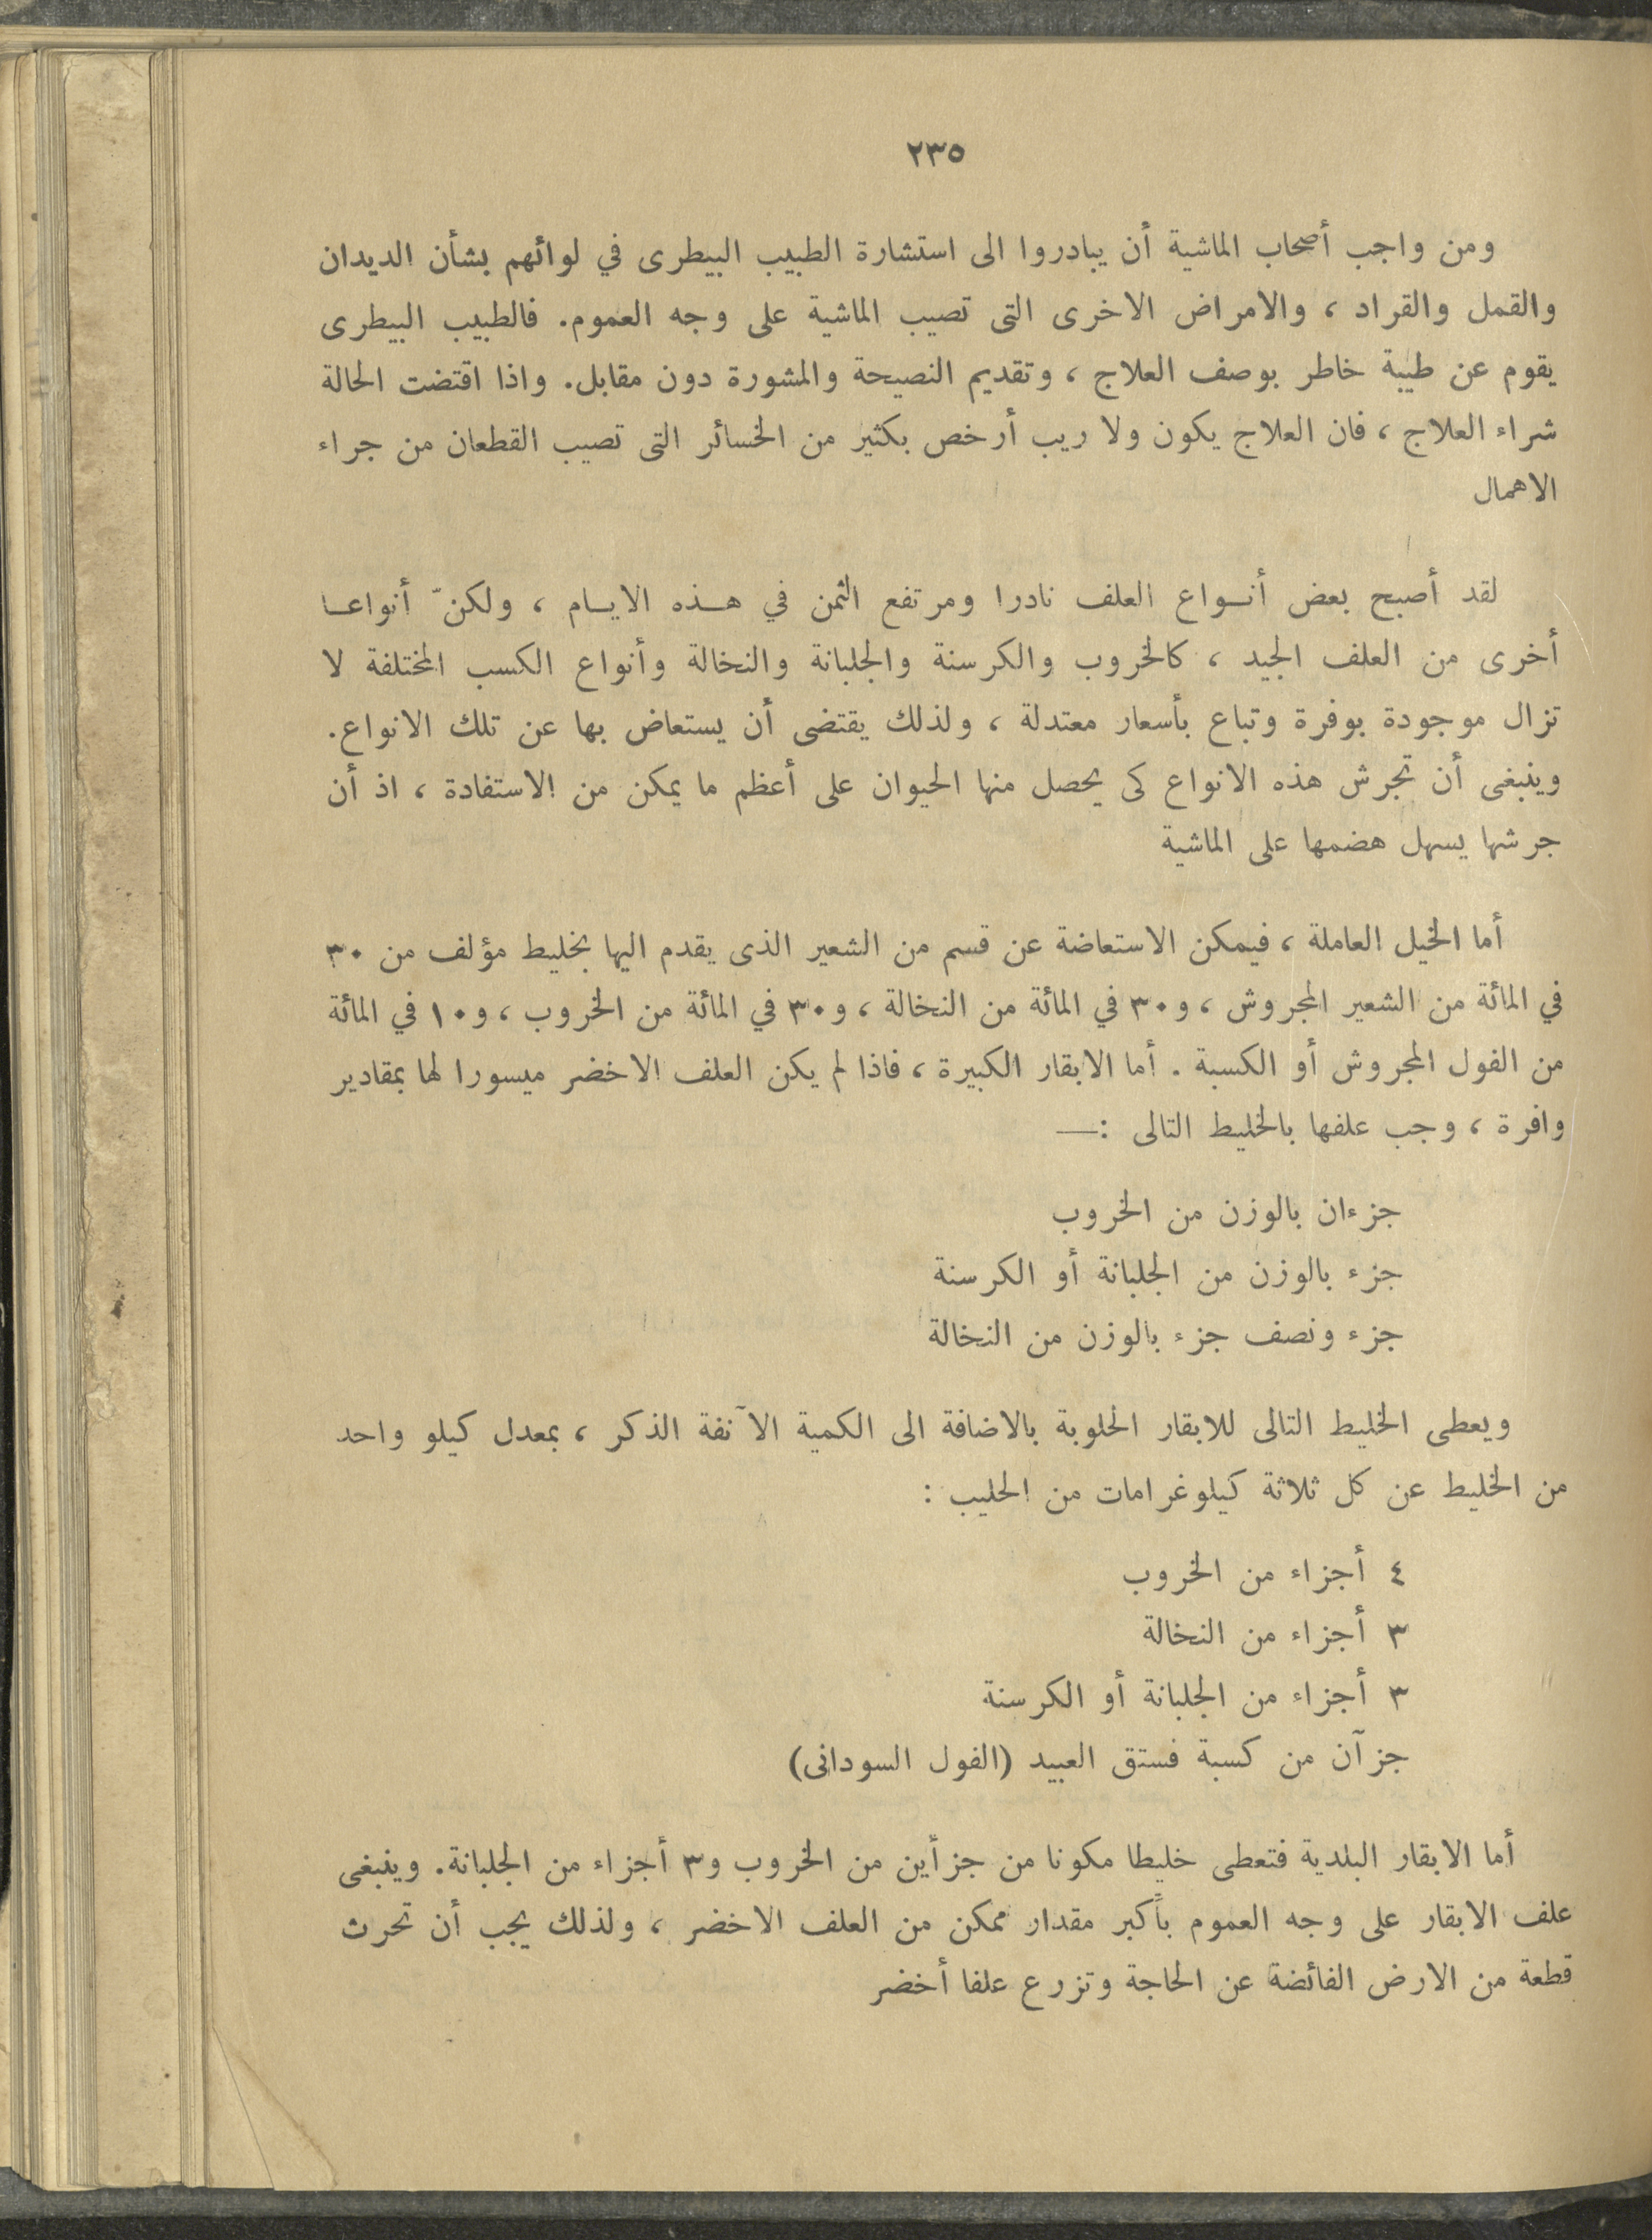 ٢٣٥
ومن واجب أصحاب الماشية أن يبادروا الى استشارة الطبيب البيطرى في لوائهم بشأن الديدان
والقمل والقراد ، والامراض الاخرى التى تصيب الماشية على وجه العموم. فالطبيب البيطرى
يقوم عن طيبة خاطر بوصف العلاج ، وتقديم النصيحة والمشورة دون مقابل. واذا اقتضت الحالة
شراء العلاج ، فان العلاج يكون ولا ريب أرخص بكثير من الخسائر التى تصيب القطعان من جراء
الاهمال
لقد أصبح بعض أنـواع العلف نادرا ومرتفع الثمن في هـذه الايـام ، ولكنّ أنواعـا
أخرى من العلف الجيد ، كالخروب والكرسنة والجلبانة والنخالة وأنواع الكسب المختلفة لا
تزال موجودة بوفرة وتباع بأسعار معتدلة ، ولذلك يقتضى أن يستعاض بها عن تلك الانواع.
وينبغى أن تجرش هذه الانواع كى يحصل منها الحيوان على أعظم ما يمكن من الاستفادة ، اذ أن
جرشها يسهل هضمها على الماشية
أما الخيل العاملة ، فيمكن الاستعاضة عن قسم من الشعير الذى يقدم اليها بخليط مؤلف من ٣٠
في المائة من الشعير المجروش ، و٣٠ في المائة من النخالة ، و٣٠ في المائة من الخروب ، و١٠ في المائة
من الفول المجروش أو الكسبة . أما الابقار الكبيرة ، فاذا لم يكن العلف الاخضر ميسورا لها بمقادير
وافرة ، وجب علفها بالخليط التالى :—
جزءان بالوزن من الخروب
جزء بالوزن من الجلبانة أو الكرسنة
جزء ونصف جزء بالوزن من النخالة
ويعطى الخليط التالى للابقار الحلوبة بالاضافة الى الكمية الآنفة الذكر ، بمعدل كيلو واحد
من الخليط عن كل ثلاثة كيلوغرامات من الحليب :
٤ أجزاء من الخروب
٣ أجزاء من النخالة
٣ أجزاء من الجلبانة أو الكرسنة
جزآن من كسبة فستق العبيد (الفول السودانى)
أما الابقار البلدية فتعطى خليطا مكونا من جزأين من الخروب و٣ أجزاء من الجلبانة. وينبغى
علف الابقار على وجه العموم بأكبر مقدار ممكن من العلف الاخضر ، ولذلك يجب أن تحرث
قطعة من الارض الفائضة عن الحاجة وتزرع علفا أخضر